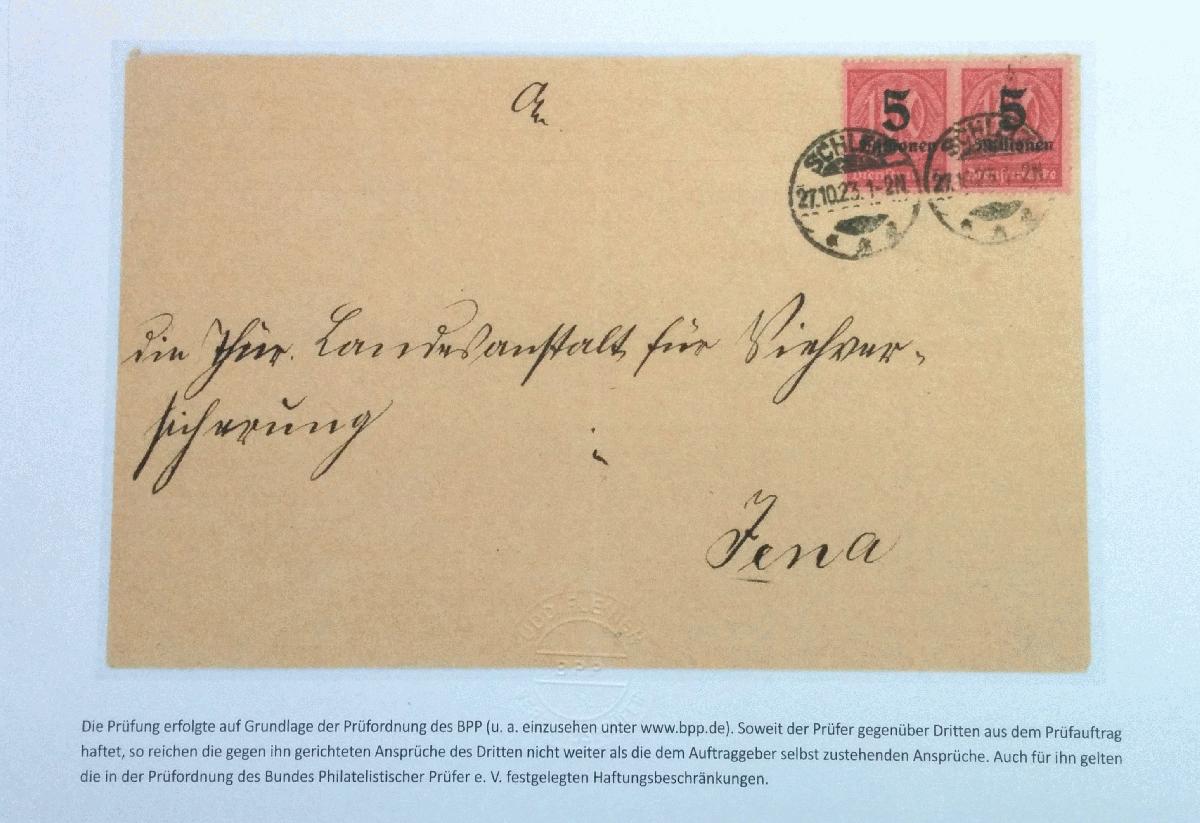 An
5 5
Millionen Millionen
Dienstmarke
SCHLE
27.10.23.1-2N
die Thür. Landesanstalt für Viehver-
sicherung
Jena
BPP
Die Prüfung erfolgte auf Grundlage der Prüfordnung des BPP (u. a. einzusehen unter www.bpp.de). Soweit der Prüfer gegenüber Dritten aus dem Prüfauftrag
haftet, so reichen die gegen ihn gerichteten Ansprüche des Dritten nicht weiter als die dem Auftraggeber selbst zustehenden Ansprüche. Auch für ihn gelten
die in der Prüfordnung des Bundes Philatelistischer Prüfer e. V. festgelegten Haftungsbeschränkungen.